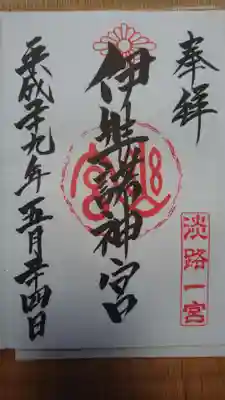 奉拝
伊弉諾神宮
淡路一宮
平成廿九年五月廿四日